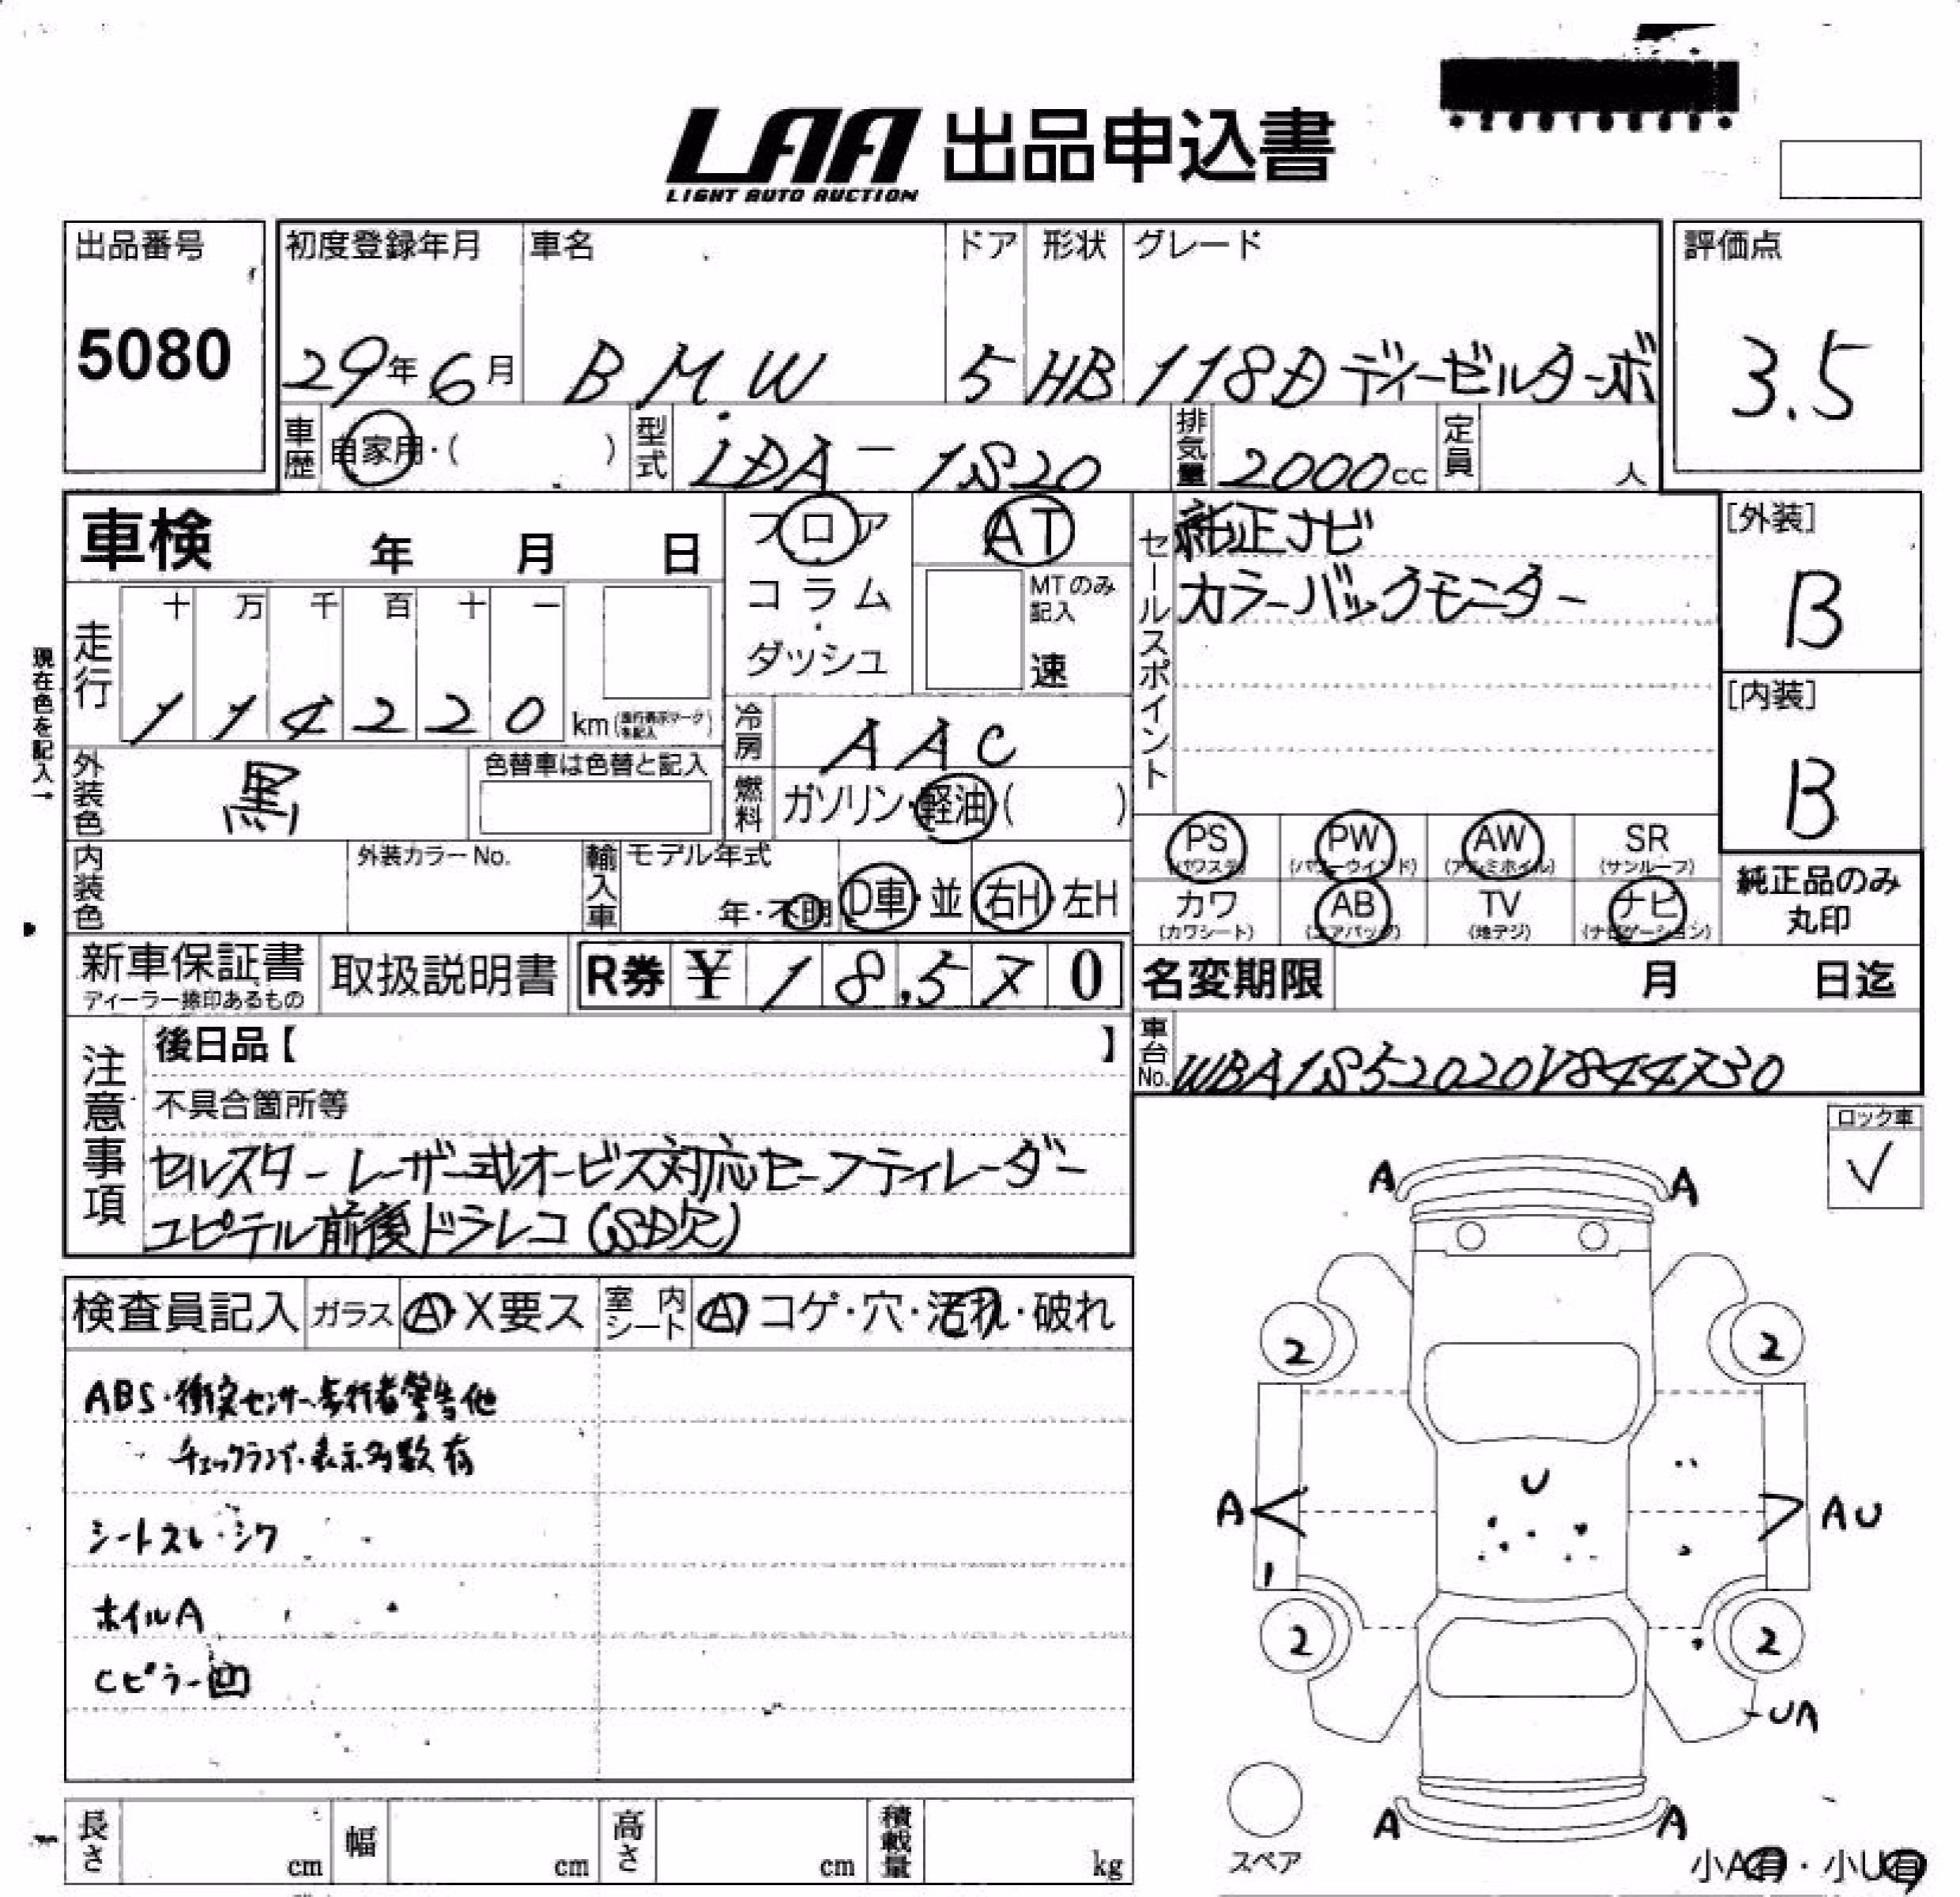 LAA 出品申込書
LIGHT AUTO AUCTION
出品番号 初度登録年月 車名 ドア 形状 グレード 評価点
5080 29年6月 BMW 5 HB 118D ディーゼルターボ 3.5
車歴 自家用・( ) 型式 LDA-1S20 排気量 2000cc 定員 人
車検 年 月 日
フロア AT
コラム MTのみ記入
ダッシュ 速
セールスポイント
純正ナビ
カラーバックモニター
[外装]
B
[内装]
B
現在色を記入→
走行 十 万 千 百 十 一
114220 km(走行表示マークを記入)
冷房 AAC
外装色 黒 色替車は色替と記入
燃料 ガソリン・軽油( )
PS PW AW SR
(パワステ) (パワーウインド) (アルミホイル) (サンルーフ)
カワ AB TV ナビ
(カワシート) (エアバッグ) (地デジ) (ナビゲーション)
純正品のみ
丸印
内装色 外装カラーNo. 輸入車 モデル年式
年・不明 D車・並 右H・左H
新車保証書 取扱説明書 R券 ¥18,570
ディーラー捺印あるもの
名変期限 月 日迄
車台No. WBA1S52020V844730
注意事項
後日品【 】
不具合箇所等
セルスター レーザー式オービス対応セーフティレーダー
ユピテル前後ドラレコ(SD欠)
ロック車
✓
検査員記入 ガラス A・X要ス 室内シート A コゲ・穴・汚れ・破れ
ABS・衝突センサー歩行者警告他
チェックランプ・表示多数有
シートスレ・シワ
ホイルA
Cピラー凹
A A
2 2
U
A AU
1
2 2
UA
A A
スペア
小A有・小U有
長さ cm 幅 cm 高さ cm 積載量 kg